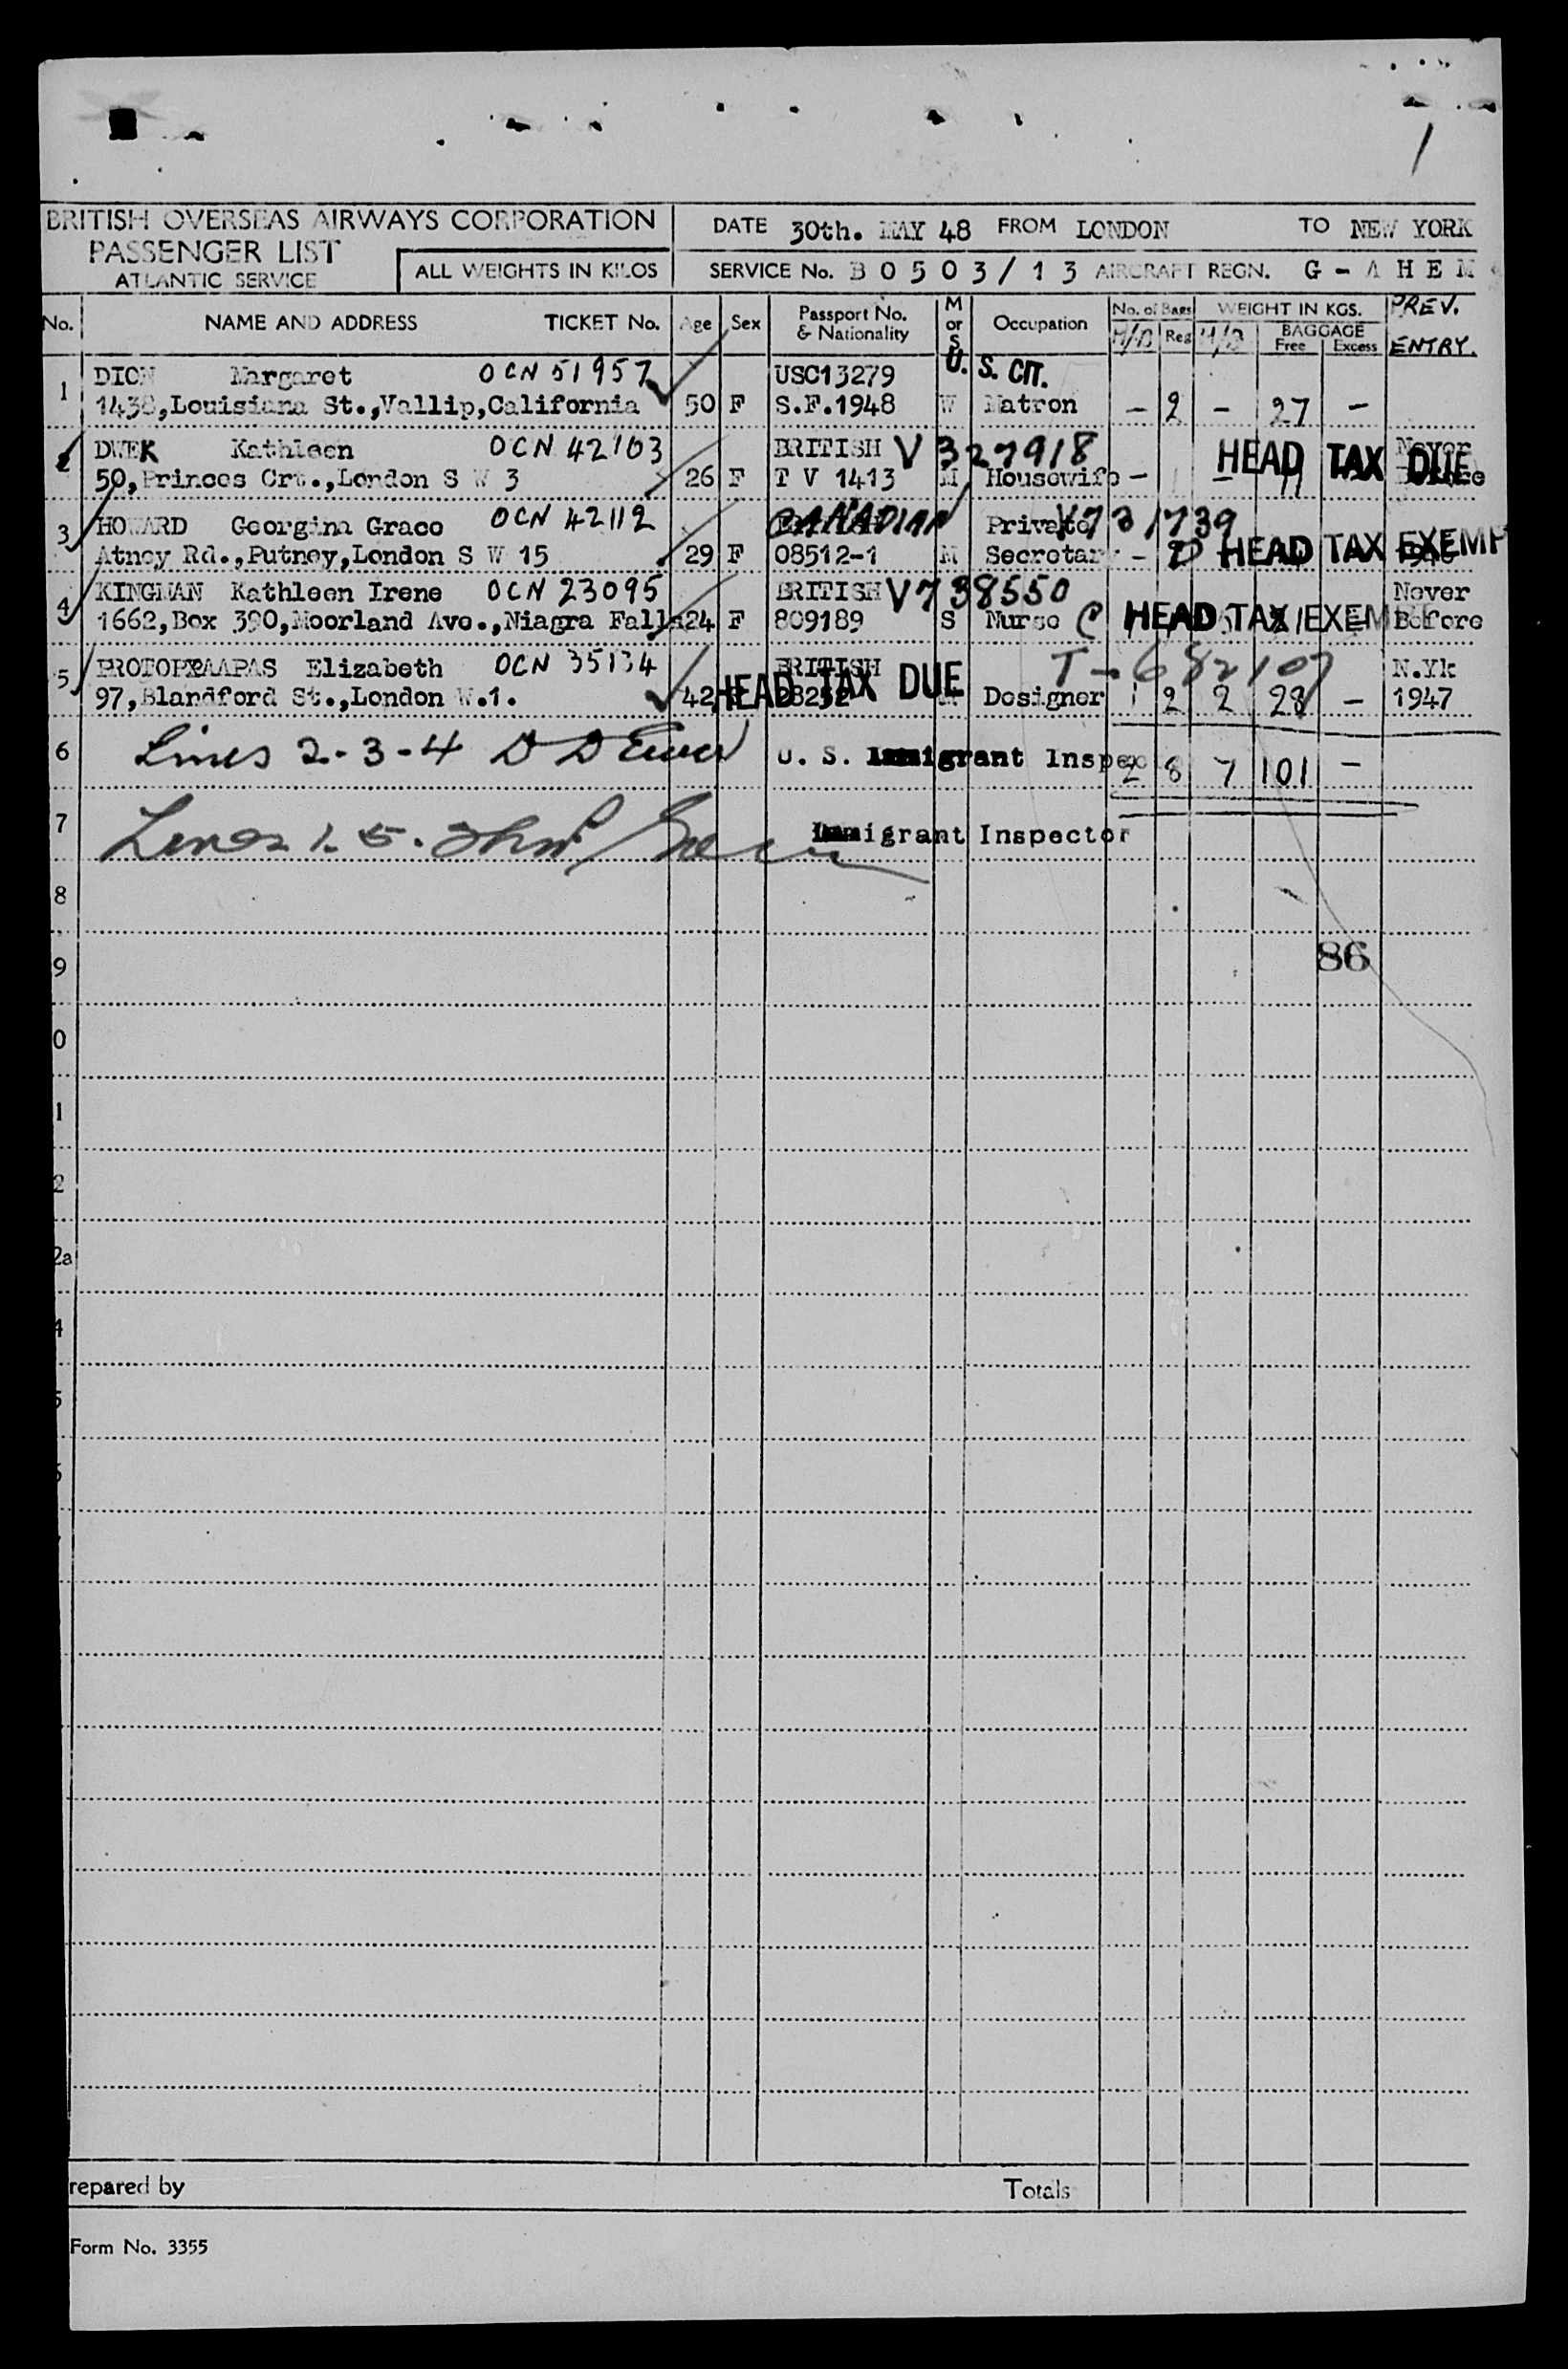 1
BRITISH OVERSEAS AIRWAYS CORPORATION
PASSENGER LIST
ATLANTIC SERVICE
ALL WEIGHTS IN KILOS
DATE 30th. MAY 48 FROM LONDON TO NEW YORK
SERVICE No. B 0 5 0 3 / 1 3 AIRCRAFT REGN. G - A H E M
No. NAME AND ADDRESS TICKET No. Age Sex Passport No. & Nationality M or S Occupation No. of Bags H/B Reg WEIGHT IN KGS. H/B BAGGAGE Free Excess PREV. ENTRY.
1 DION Margaret OCN 51957 USC13279 U. S. CIT.
1438,Louisiana St.,Vallip,California 50 F S.F.1948 W Matron - 2 - 27 -
2 DWEK Kathleen OCN 42103 BRITISH V 327918 HEAD TAX DUE Never
50,Princes Crt.,London S W 3 26 F T V 1413 M Housewife - Before
3 HOWARD Georgina Grace OCN 42112 CANADIAN Private V731739
Atney Rd.,Putney,London S W 15 29 F 08512-1 M Secretary - 2 HEAD TAX EXEMP
4 KINGMAN Kathleen Irene OCN 23095 BRITISH V738550 Never
1662,Box 390,Moorland Ave.,Niagra Falls 24 F 809189 S Nurse HEAD TAX EXEM Before
5 PROTOPAPAS Elizabeth OCN 35134 BRITISH T-682107 N.Yk
97,Blandford St.,London W.1. 42 HEAD TAX DUE Designer 1 2 2 28 - 1947
6 Lines 2-3-4 U. S. Immigrant Inspec 2 8 7 101 -
7 Lines 1. 5. Immigrant Inspector
8
9 86
0
1
2
2a
4
5
6
repared by Totals
Form No. 3355